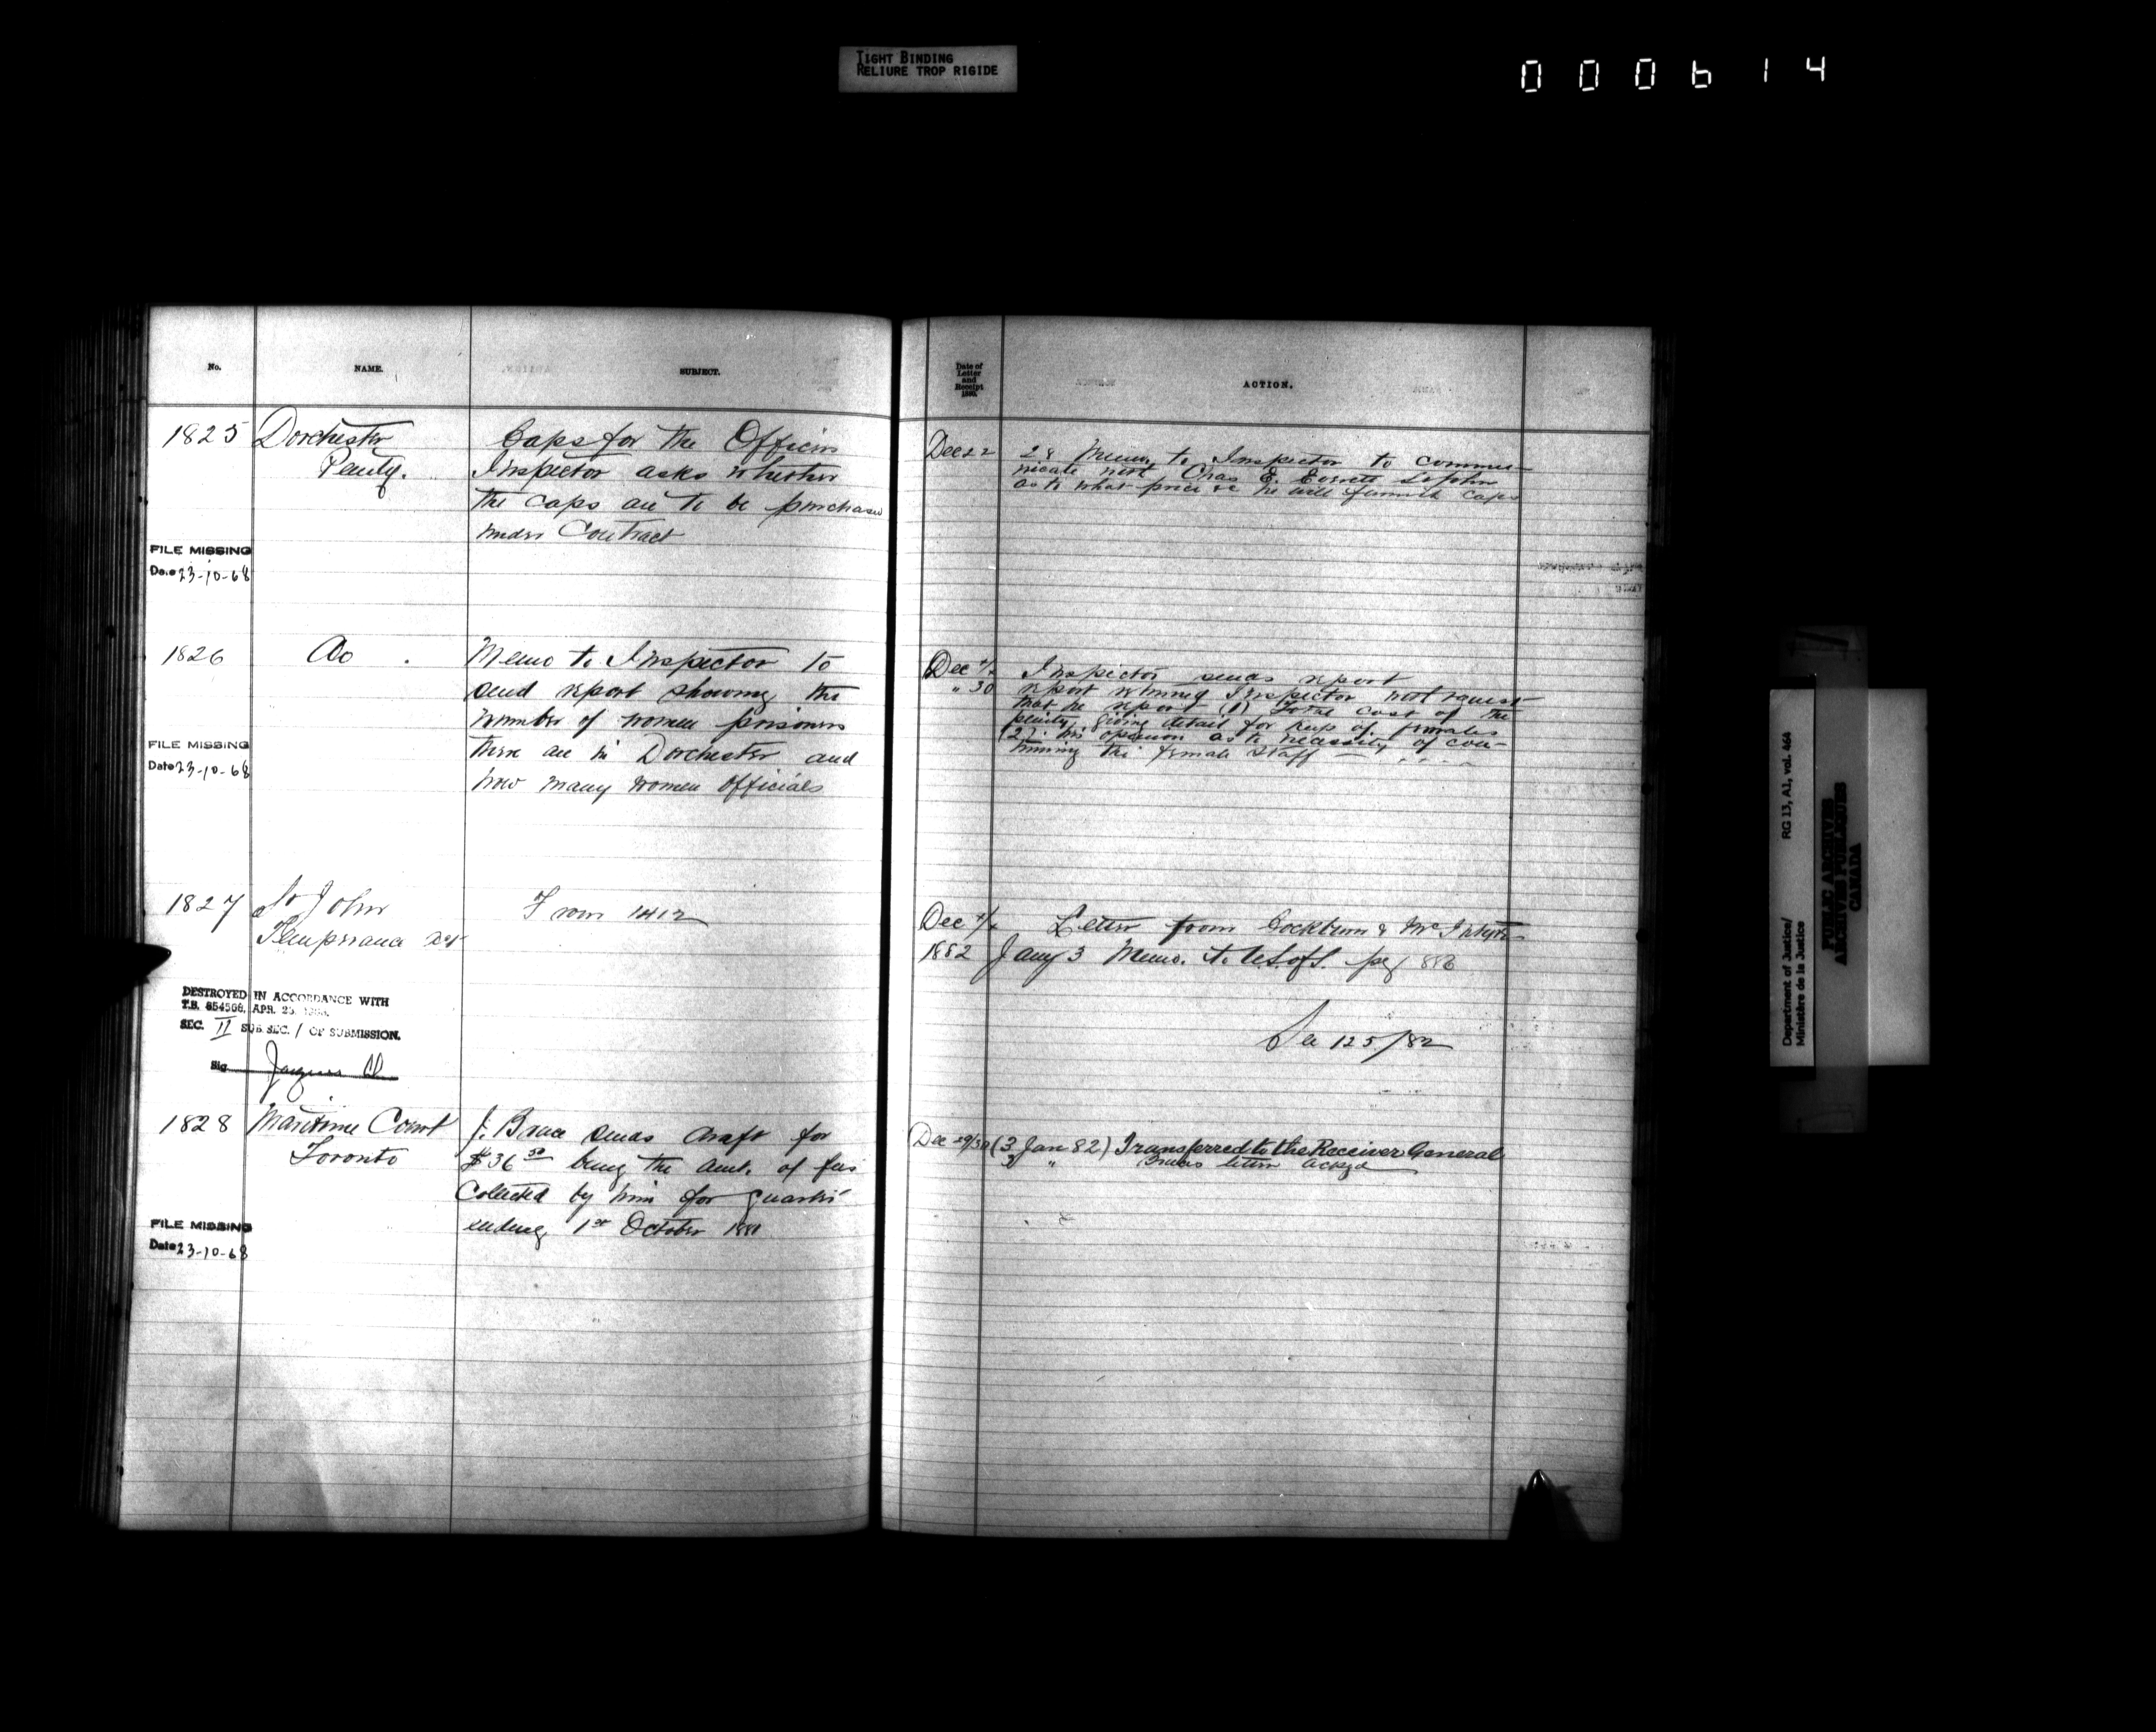 TIGHT BINDING
RELIURE TROP RIGIDE
000614
No.
NAME.
SUBJECT.
1825 Dorchester
Penity.
Caps for the Officers
Inspector asks whether
the caps are to be purchased
under Contract
FILE MISSING
Date 23-10-68
1826 Do.
Memo to Inspector to
send report showing the
number of women prisoners
there are in Dorchester and
how many women officials
FILE MISSING
Date 23-10-68
1827 St John
Temperance
From 1412
DESTROYED IN ACCORDANCE WITH
T.B. 854568, APR. 25,
SEC. II SUB SEC. 1 OF SUBMISSION.
Sig
1828 Maritime Court
Toronto
J. Bruce sends draft for
$36 50 being the amt. of fees
Collected by him for quarter
ending 1st October 1881
FILE MISSING
Date 23-10-68
Date of
Letter
and
Receipt
ACTION.
Dec 22 28 Memo to Inspector to commu-
nicate with Chas E. Everett St John
as to what price &c he will furnish caps
Dec
" 30
Inspector sends report
report returned Inspector with request
that he report (1) Total cost of the
penity, giving detail for keep of females
(2). his opinion as to necessity of con-
tinuing the female staff
Dec Letter from Cockburn & McIntyre
1882 Jany 3 Memo. to U.S. of S. pg 886
See 125/82
Dec 29/30 (3 Jan 82) Transferred to the Receiver General
3 " Bruces letter ackgd
Department of Justice/
Ministère de la Justice
RG 13, A1, vol. 464
PUBLIC ARCHIVES
ARCHIVES PUBLIQUES
CANADA